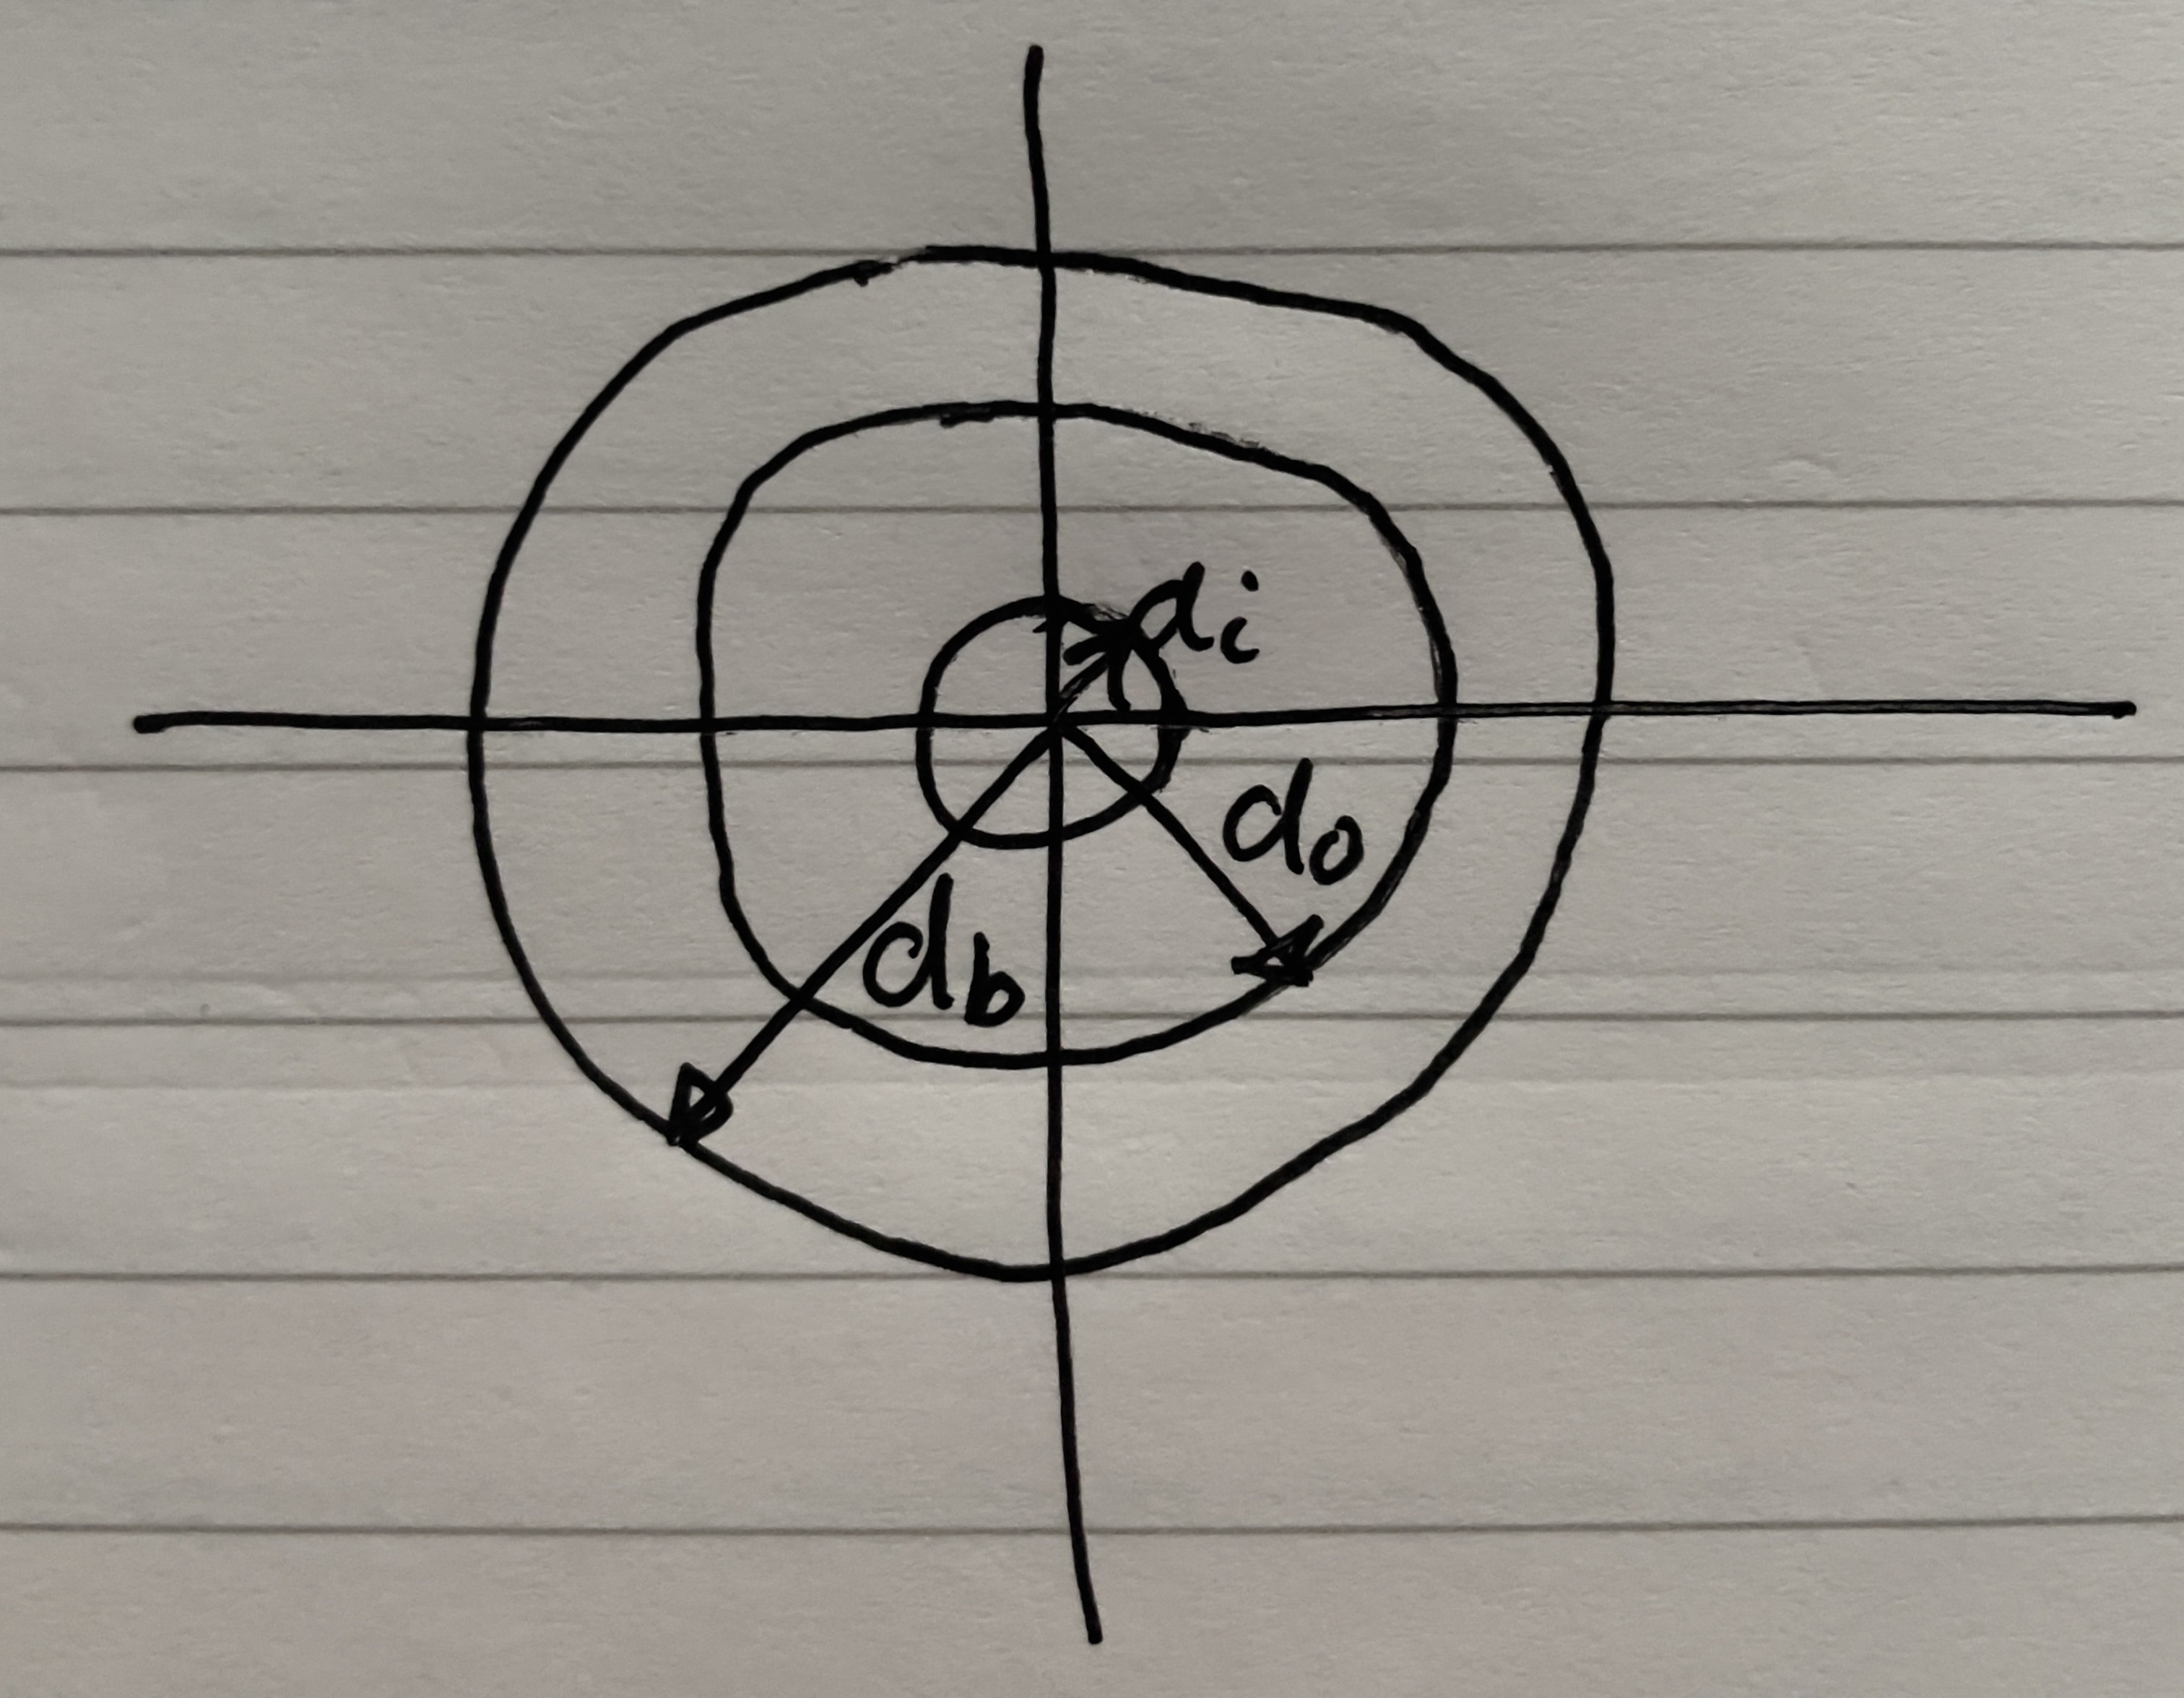 di
do
db